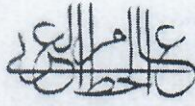 عالم الخط العربي